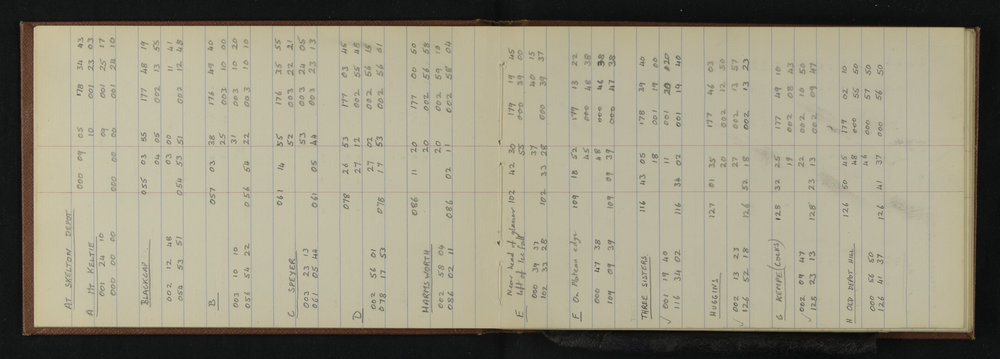 AT SKELTON DEPOT
000 09 05 178 34 43
A Mt KELTIE 10 001 23 03
001 24 10 09 001 25 17
000 00 00 000 00 00 001 24 10
BLACKCAP 055 03 05 177 48 19
04 05 002 13 55
002 12 48 03 00 002 11 41
054 53 51 054 53 51 002 12 48
B 057 03 38 176 49 40
25 003 10 00
003 10 10 31 003 10 20
056 54 22 056 54 22 003 10 10
061 14 55 176 35 55
C SPEYER 52 003 22 21
003 23 13 53 003 24 05
061 05 44 061 05 44 003 23 13
078 26 53 177 03 45
D 27 12 002 55 48
002 56 01 27 02 002 56 15
078 17 53 078 17 53 002 56 01
086 11 20 177 00 50
HARMSWORTH 20 002 56 58
002 58 04 20 002 59 10
086 02 11 086 02 11 002 58 04
Near head of glacier 102 42 30 179 19 45
E left of Ice fall 53 000 39 00
000 39 37 37 000 40 15
102 33 28 102 33 28 000 39 37
F On Plateau edge 109 18 52 179 13 22
45 000 48 38
000 47 38 48 000 46 38
109 09 39 109 09 39 000 47 38
THREE SISTERS 116 43 05 178 39 40
18 001 19 00
✓ 001 19 40 11 001 20 20
116 34 02 116 34 02 001 19 40
HUGGINS 127 01 35 177 46 03
20 002 12 50
✓ 002 13 23 27 002 13 57
126 52 18 126 52 18 002 13 23
G KEMPE (COLES) 128 32 25 177 49 10
19 002 08 43
✓ 002 09 47 22 002 10 50
128 23 13 128 23 13 002 09 47
H OLD DEPOT HILL 126 50 45 179 02 10
48 000 55 50
000 56 50 46 000 57 50
126 41 37 126 41 37 000 56 50